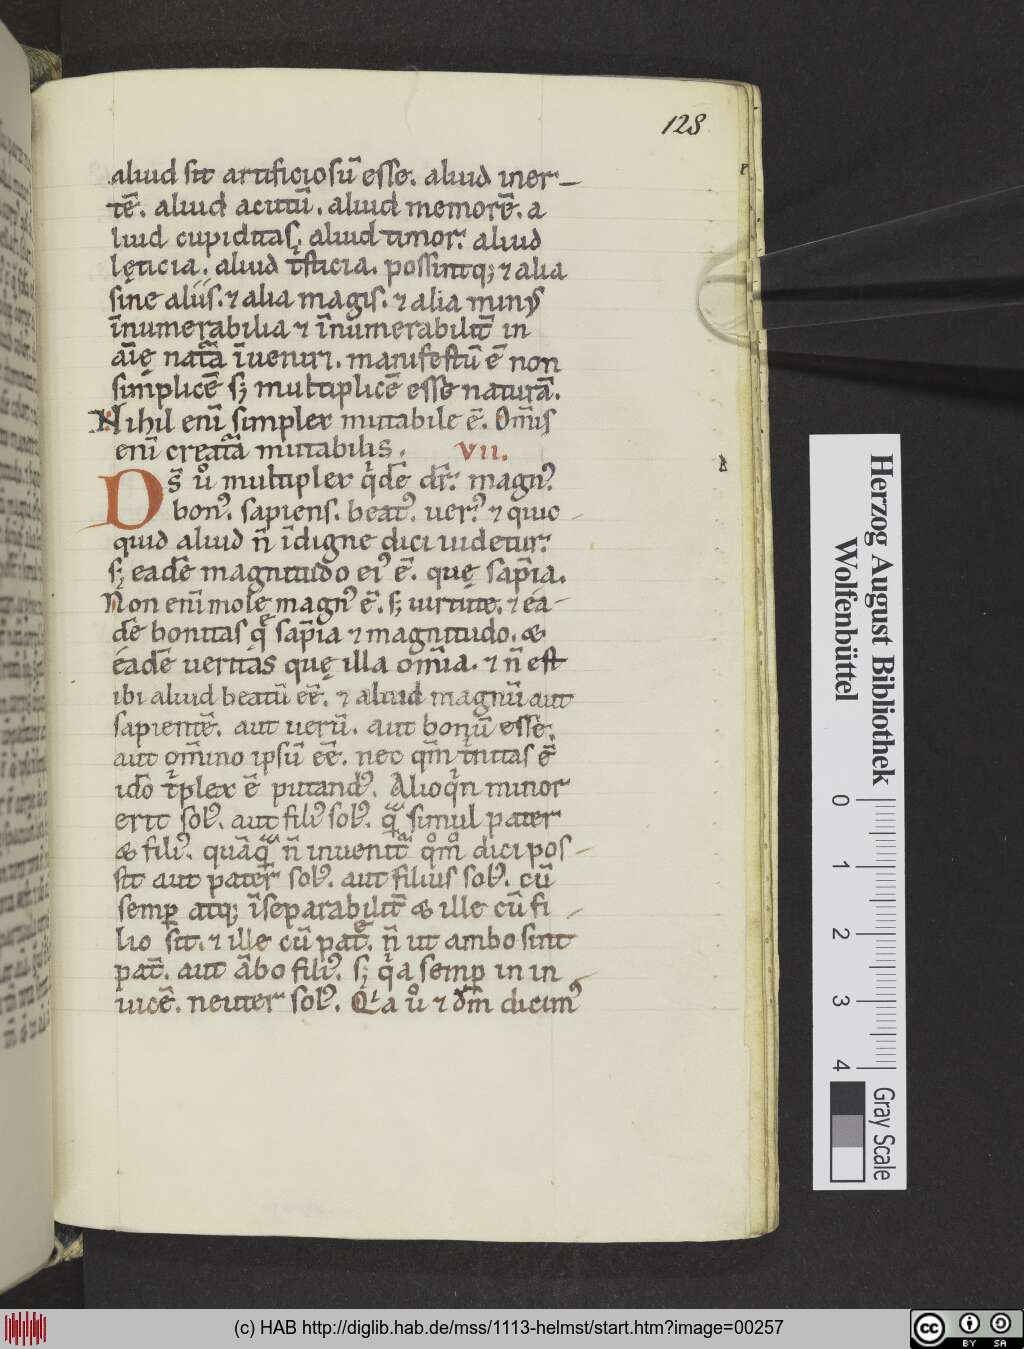 128
aliud sit artificiosū esse. aliud iner-
tē. aliud acutū. aliud memorē. a
liud cupiditas. aliud timor. aliud
lęticia. aliud tͥsticia. possintq; ⁊ alia
sine aliis. ⁊ alia magis. ⁊ alia minꝰ
īnumerabilia ⁊ īnumerabilit̄ in
aīę nat̄a īueniri. manifestū ē non
simplicē s; multiplicē esse naturā.
Nihil enī simplex mutabile ē. Om̄is
enī creat̄a mutabilis. VII.
Ds̄ ů multiplex qͥdē dr̄. magnꝰ.
bonꝰ. sapiens. beatꝰ. uerꝰ. ⁊ quic
quid aliud n̄ īdigne dici uidetur.
s; eadē magnitudo eiꝰ ē. quę sap̄ia.
Non enī mole magnꝰ ē. s; uirtute. ⁊ ea-
dē bonitas q̄ sap̄ia ⁊ magnitudo. &
eadē ueritas quę illa om̄ia. ⁊ n̄ est
ibi aliud beatū eē. ⁊ aliud magnū aut
sapientē. aut uerū. aut bonū esse.
aut om̄ino ipsū eē. nec qm̄ tͥnitas ē
idō tͥplex ē putandꝰ. Alioqͥn minor
erit solꝰ. aut filiꝰ solꝰ. qͣ simul pater
& filiꝰ. quāqͣ n̄ inuenit̄ qͦmͦ dici pos-
sit aut pater solꝰ. aut filius solꝰ. cū
semꝑ atq; īseparabilit̄ & ille cū fi
lio sit. ⁊ ille cū pat̄e. n̄ ut ambo sint
pat̄. aut ābo filiꝰ. s; qͥa semꝑ in in
uicē. neuter solꝰ. Qͥa ů ⁊ dm̄ dicimꝰ
Herzog August Bibliothek
Wolfenbüttel
0 1 2 3 4
Gray Scale
(c) HAB http://diglib.hab.de/mss/1113-helmst/start.htm?image=00257
cc BY SA